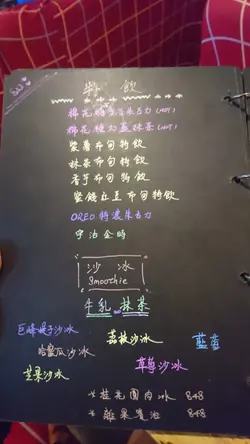 特 飲
棉花糖雲吉朱古力 (HOT)
棉花糖大蓋抹茶 (HOT)
紫薯布甸特飲
抹茶布甸特飲
香芋布甸特飲
蜜糖紅豆布甸特飲
OREO特濃朱古力
宇治金時
沙 冰
Smoothie
牛乳 抹茶
巨峰提子沙冰 荔枝沙冰 藍莓
哈蜜瓜沙冰 草莓沙冰
芒果沙冰
桂花圓肉冰 $48
雜果賓治 $48